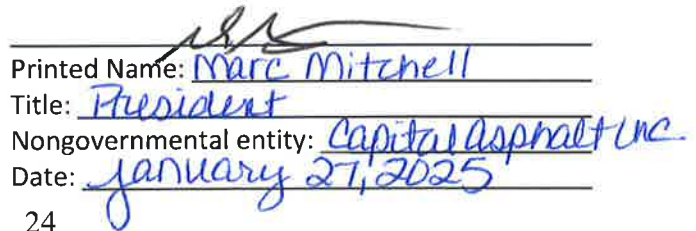 Printed Name: Marc Mitchell
Title: President
Nongovernmental entity: Capital Asphalt Inc.
Date: January 27, 2025
24